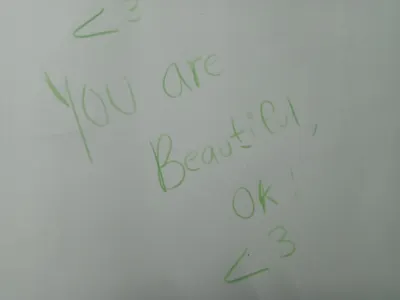 <3
You are
Beautiful,
OK!
<3